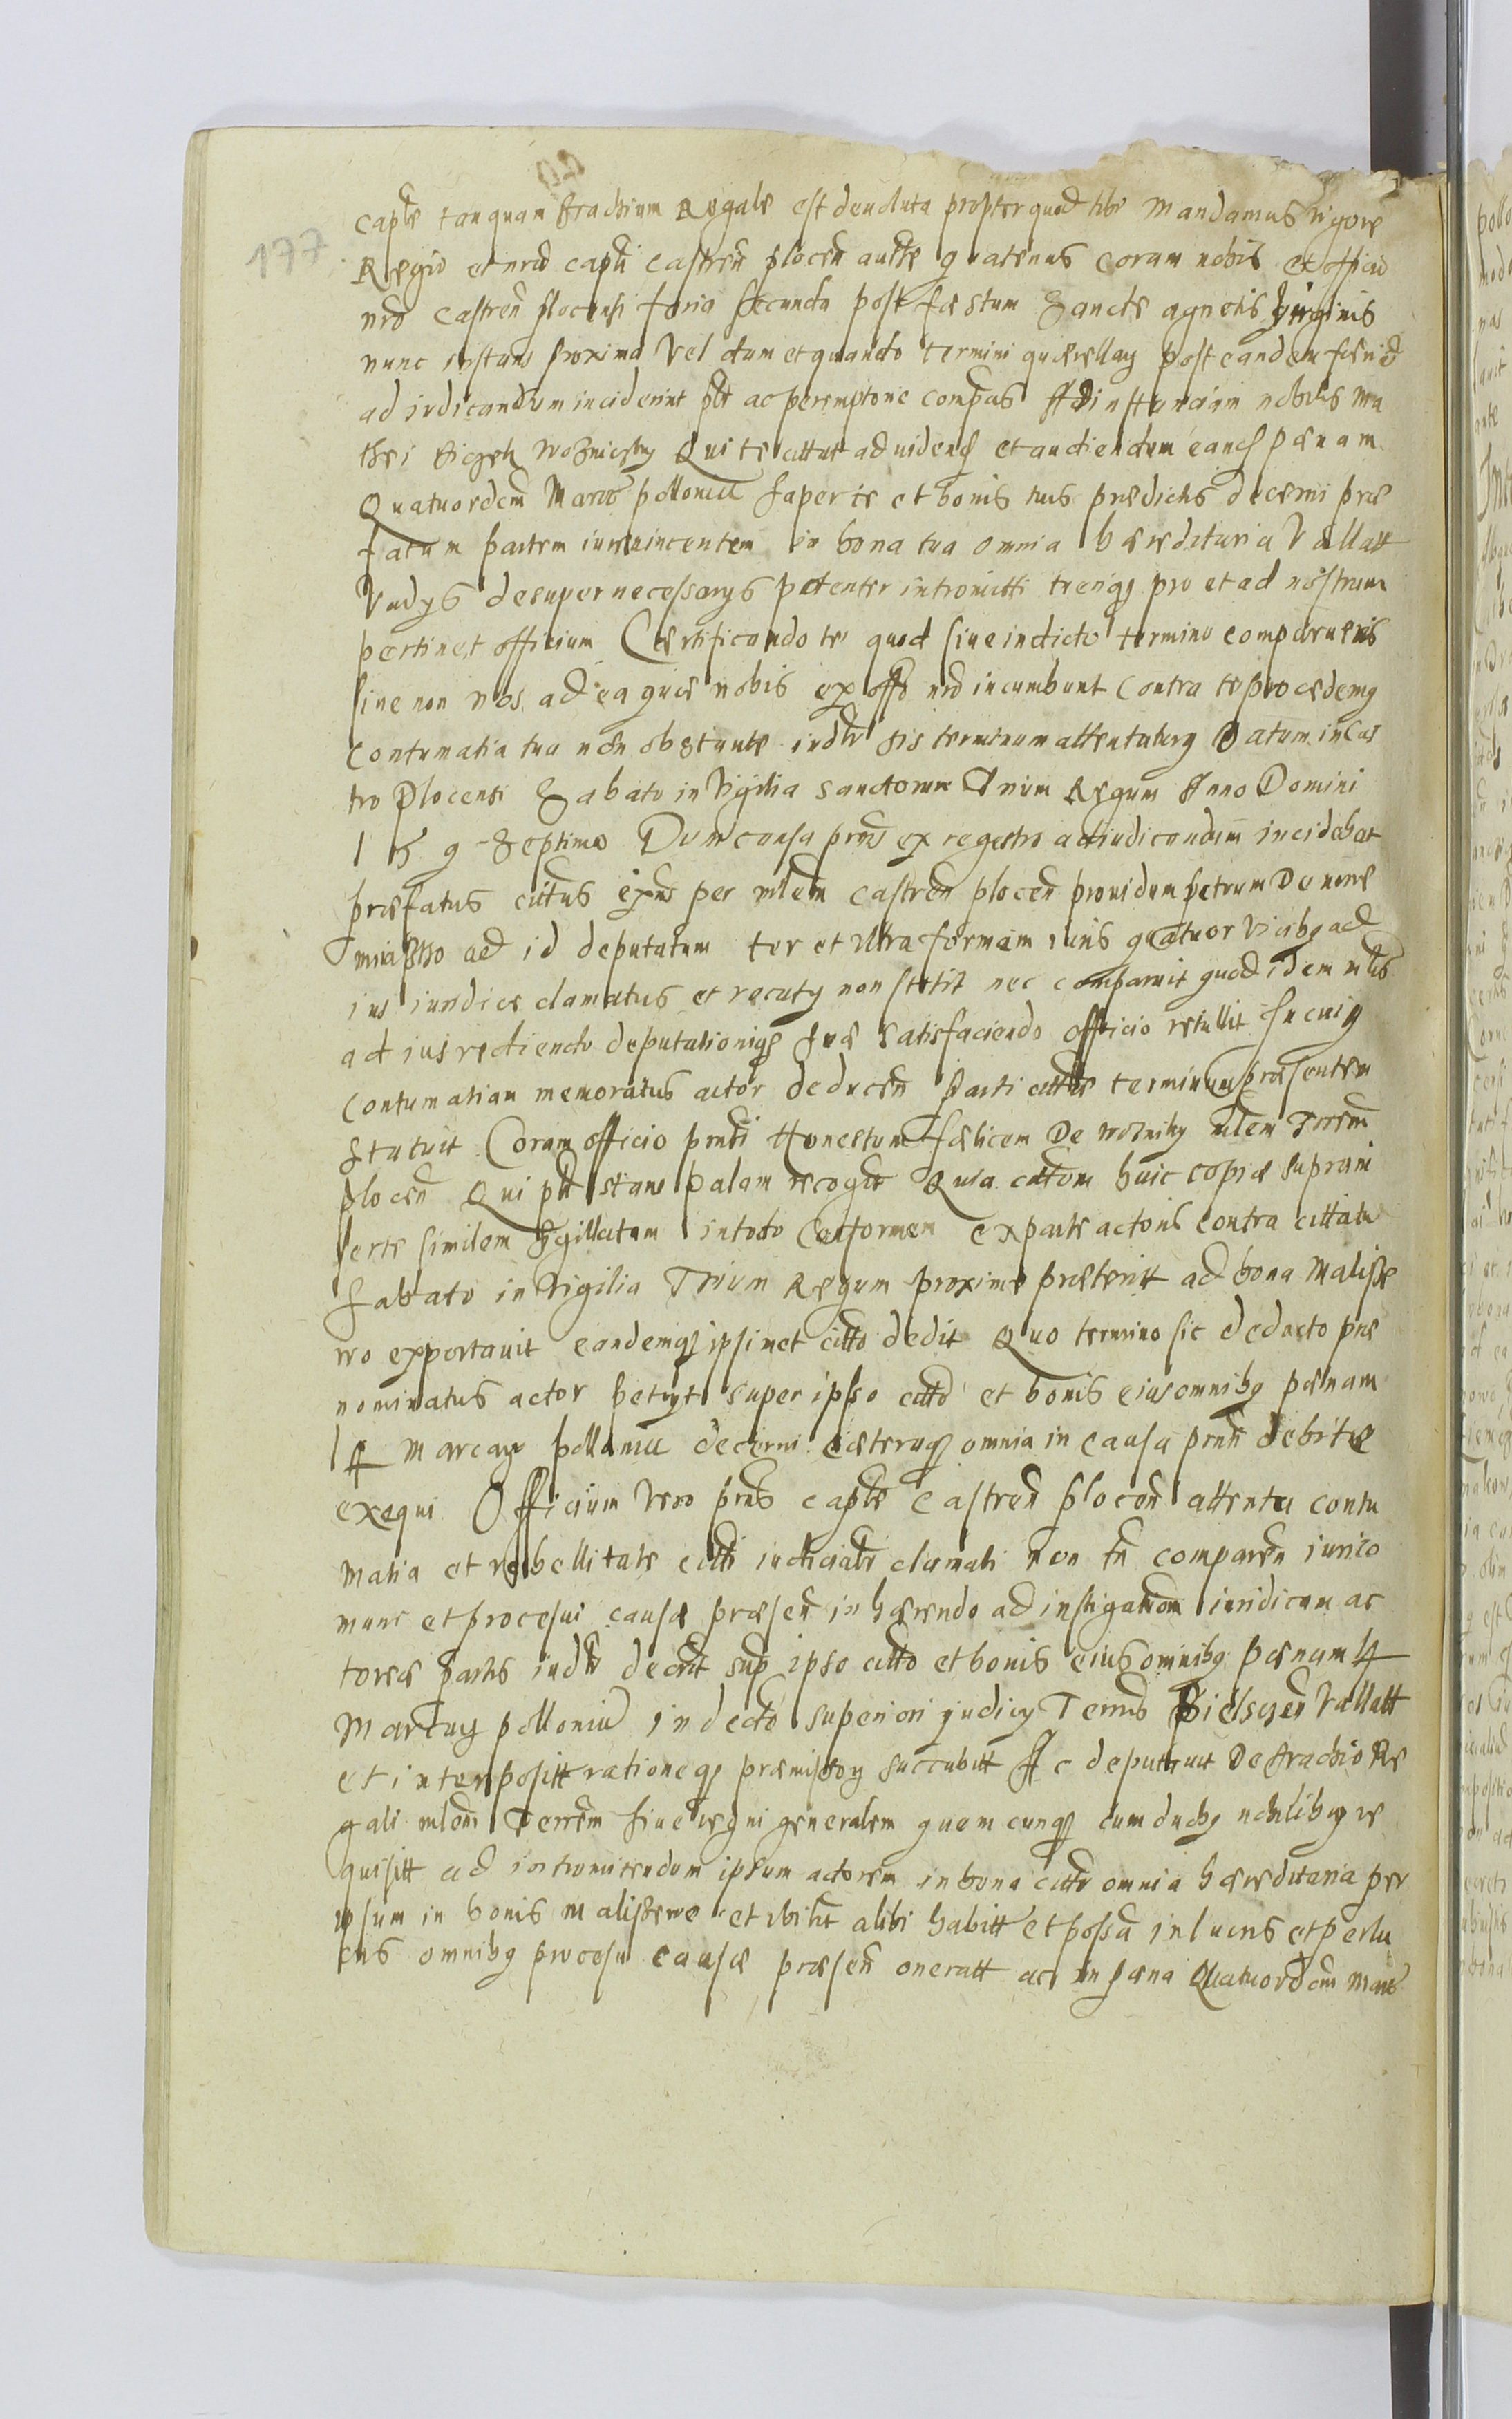 177
captle tanquam Brachium Regale est deuoluta propter quod tibi Mandamus rigore
Regio et nro captli castren plocen autte quatenus coram nobis et officio
nro castren plocensi feria secunda post festum Sancte agnetis Virginis
nunc instans proxima Vel dum et quando termini quærellar post eandem feriā
ad iudicandum inciderint plr ac peremptorie compas Ad instanciam nobilis Ma
thei Wozniczky Qui te cittat ad videnḍ et audiendum eanḍ pænam
Quatuordecim Marcar polloni super te et bonis tuis prædictis decerni præ
fatum partem iureuincentem in bona tua omnia hæreditaria Vallatt
Vadys desuper necessarys potenter intromitti trenq pro et ad nostrum
pertinet officium Certificando te quod siue in dicto termino comparueris
siue non nos ad ea quæ nobis ex offo nro incumbunt contra te procedemq
contumatia tua non obstante iudlr sis terminum attentaturq Datum in Cas
tro Plocensi Sabato in Vigilia sanctorum Trium Regum Anno Domini
1 5 9 Septimo Dum causa præns ex regestro adiudicandum incidebat
præfatus cittus per mlem castren plocen prouidum petrum De
ad id deputatum ter et Vltra formam iuris quatuor vicibq ad
ius iuridice clamatus et vocatq non stetit nec comparuit quod idem mlis
ad ius reddiendo deputationiq suæ satisfaciendo officio retullit In cuiq
contumatiam memoratus actor deducen parti cittæ terminum præsentem
statuit Coram officio prnti Honestum fælicem De Wozniky mlem Terrem
plocen Qui plr stans palam recogt Quia cittom huic copiæ suprains
serte similem Sigillatam in toto Conformem ex parte actoris contra cittatu
sabato in Vigilia Trium Regum proxime præteritt ad bona Malisze
wo exportauit eandemq ipsimet citto dedit Quo termino sic deducto præ
nominatus actor petiyt super ipso citto et bonis eius omnibq pænam
14 Marcar pollonic decerni cæteraq omnia in causa prnti debite
exequi Officium Vero prns captle castren plocen attenta contu
matia et rebellitate citti iudicialr clamati non tn comparen iurico
mune et procesui causæ præsen inhærendo ad instigation iuridicam ac
toreæ partis iudlr decrit sup ipso citto et bonis eius omnibq pænam 14
Marcarq pollonic in decto superiori judicy Terris Bielscen Vallatt
et interpositt rationeq præmissorq succubitt Ac deputauit De Brachio Re
gali mlem Terrem siue regni generalem quemcunq cum duobq nobilibq re
quisitt ad intromitendum ipsum actorem in bona citti omnia hæreditaria per
ipsum in bonis Maliszewo et vbilit alibi habitt et possa in lucris et perlu
cris omnibq procesu causæ præsen oneratt ac in pæna Quatuordcim Marc